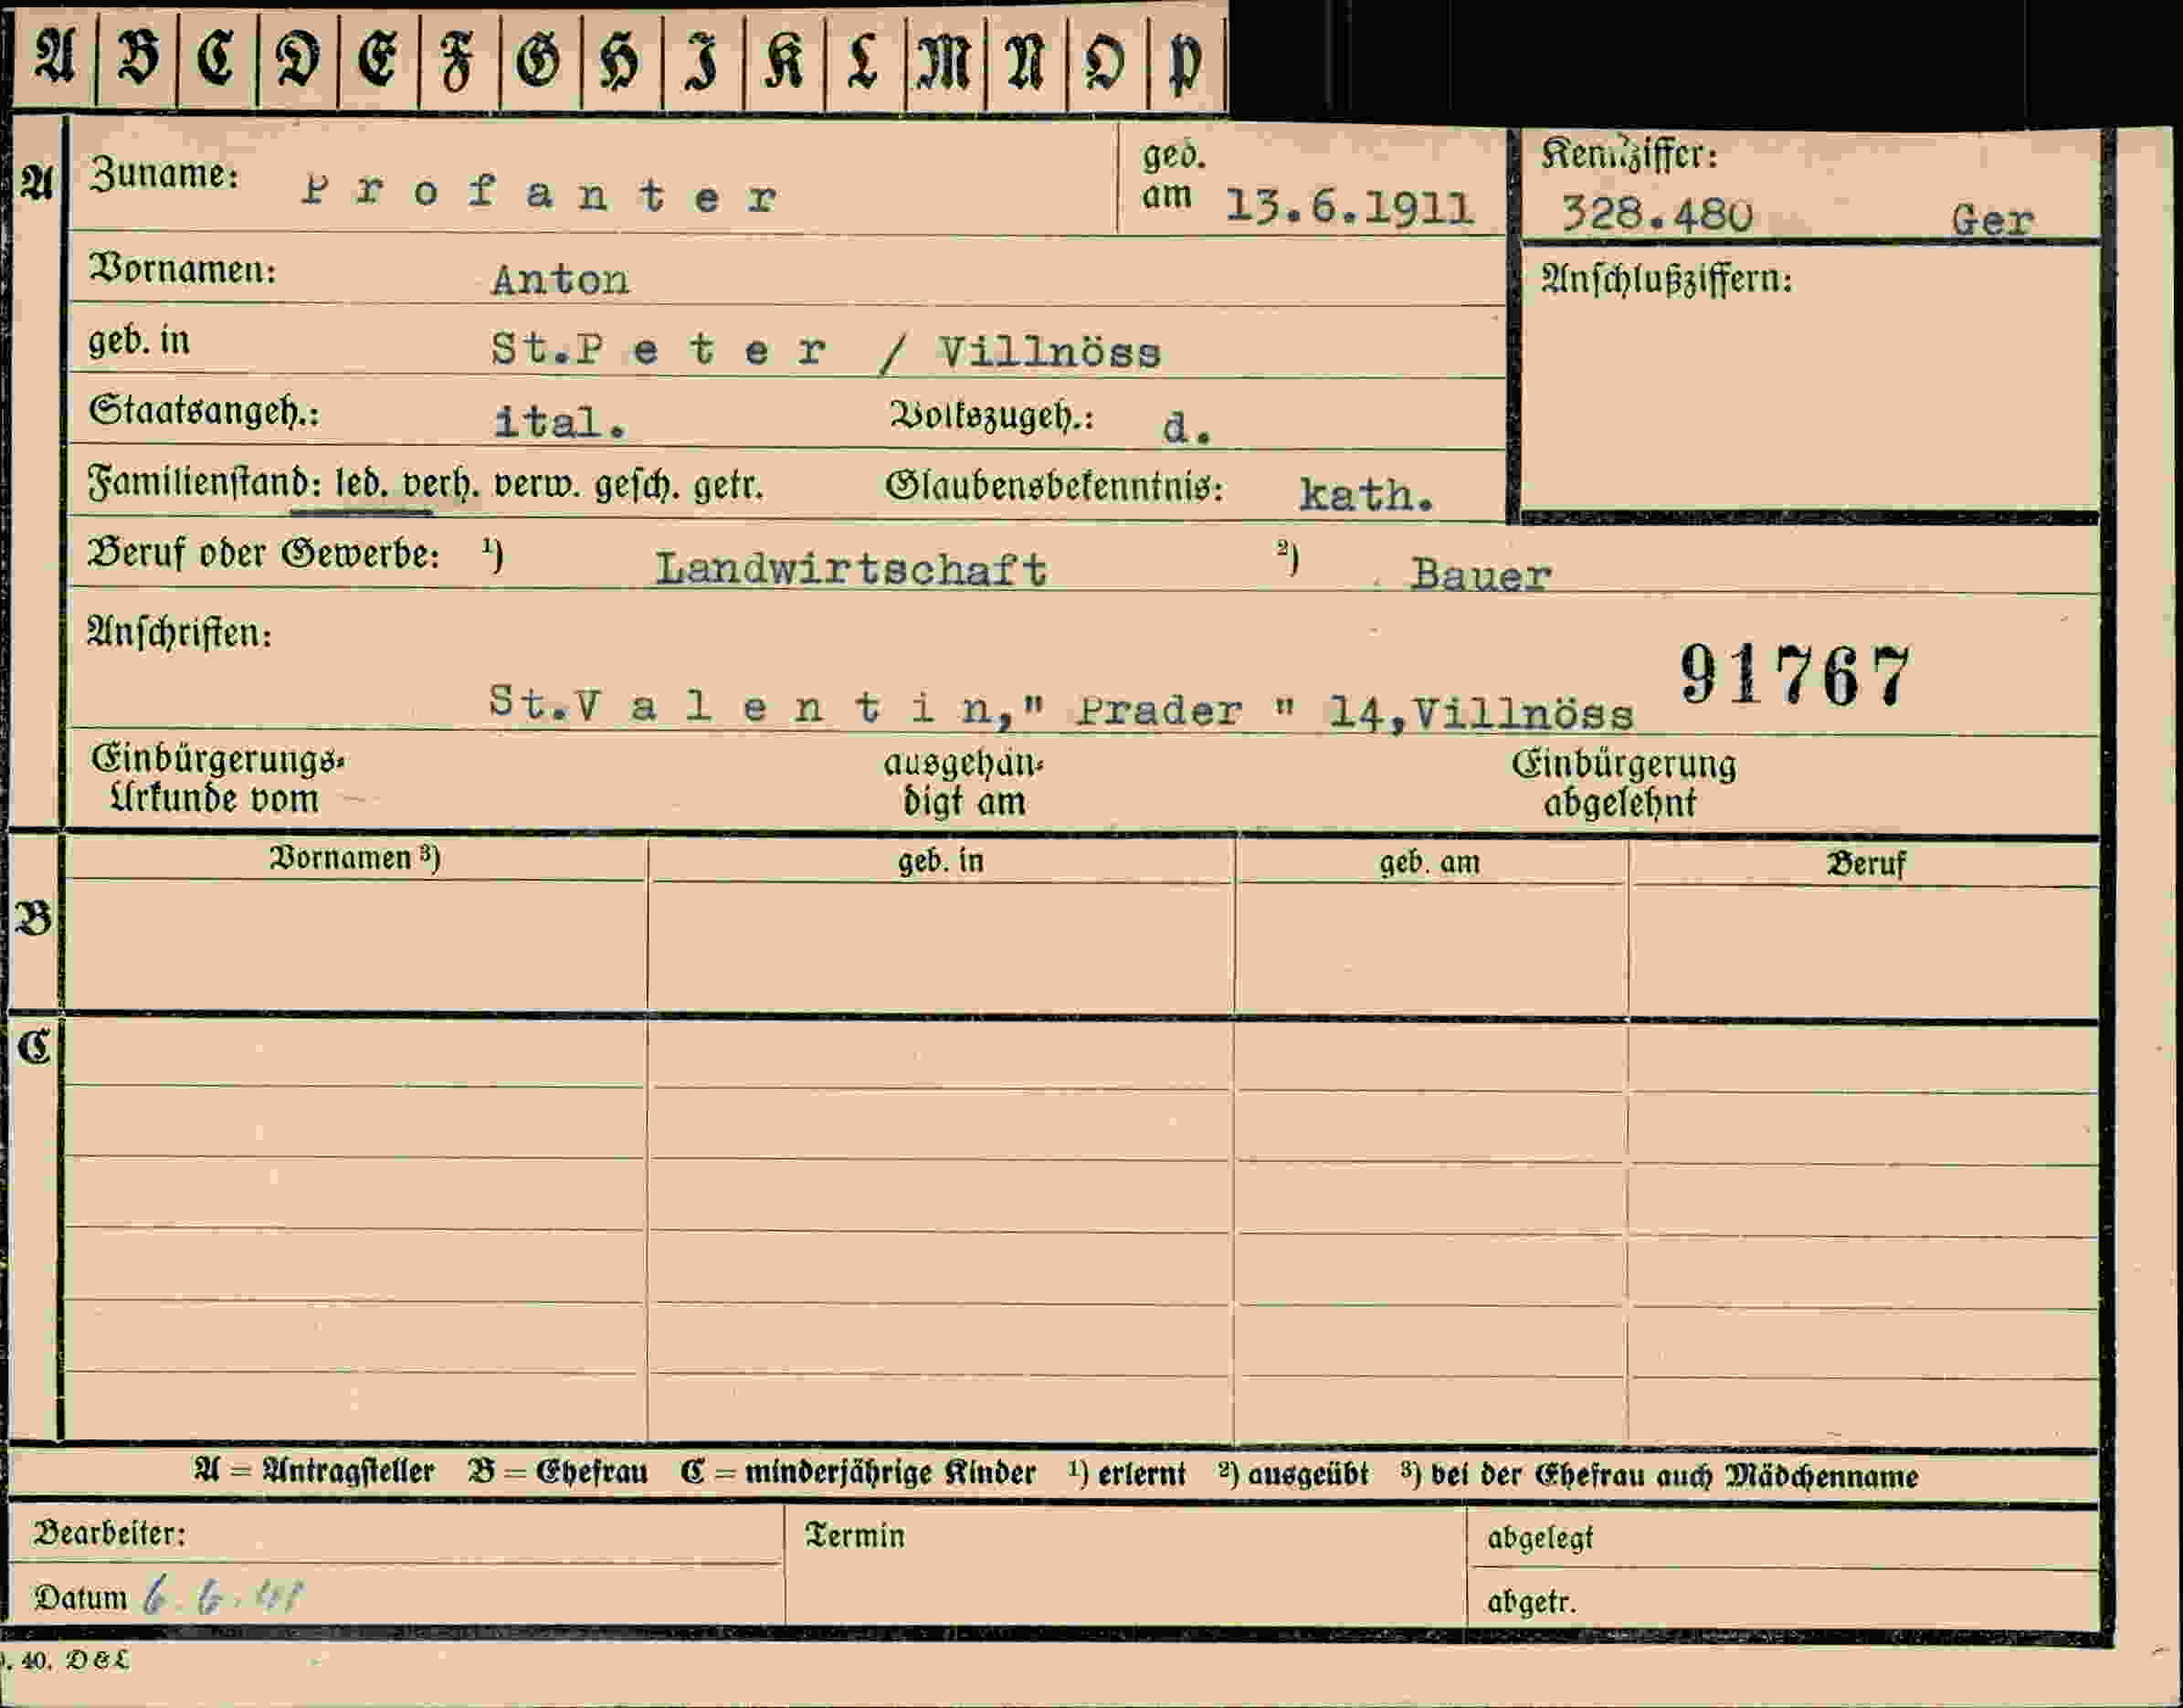 A B C D E F G H I K L M N O P
A Zuname: Profanter geb. am 13.6.1911 Kennziffer: 328.480 Ger
Vornamen: Anton Anschlußziffern:
geb. in St.Peter / Villnöss
Staatsangeh.: ital. Volkszugeh.: d.
Familienstand: led. verh. verw. gesch. getr. Glaubensbekenntnis: kath.
Beruf oder Gewerbe: ¹) Landwirtschaft ²) Bauer
Anschriften: 91767
St.Valentin," Prader " 14,Villnöss
Einbürgerungs- ausgehän- Einbürgerung
Urkunde vom digt am abgelehnt
Vornamen ³) geb. in geb. am Beruf
B
C
A = Antragsteller B = Ehefrau C = minderjährige Kinder ¹) erlernt ²) ausgeübt ³) bei der Ehefrau auch Mädchenname
Bearbeiter: Termin abgelegt
Datum 6.6.41 abgetr.
. 40. D&L